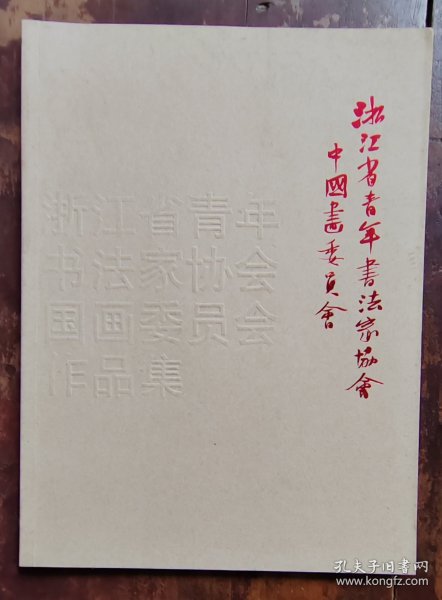 浙江省青年書法家協會
中國畫委員會
浙江省青年
书法家协会
国画委员会
作品集
孔夫子旧书网
www.kongfz.com